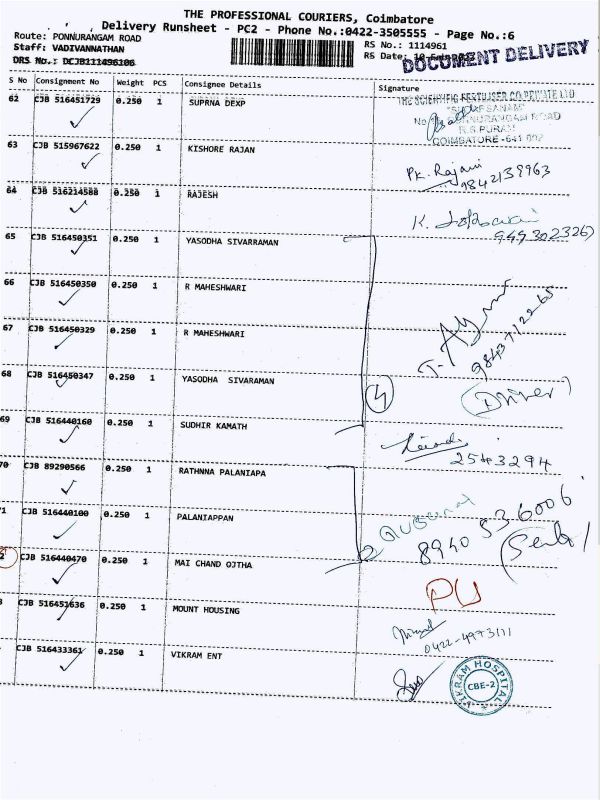 THE PROFESSIONAL COURIERS, Coimbatore
Delivery Runsheet - PC2 - Phone No.:0422-3505555 - Page No.:6
Route: PONNURANGAM ROAD
Staff: VADIVANNATHAN
DRS No.: DCJB111496106
RS No.: 1114961
RS Date:
DOCUMENT DELIVERY
S No Consignment No Weight PCS Consignee Details Signature
62 CJB 516451729 0.250 1 SUPRNA DEXP
THE SCIENTIFIC FERTILISER CO PRIVATE LTD
PONNURANGAM ROAD
R.S.PURAM
COIMBATORE - 641 002
63 CJB 515967622 0.250 1 KISHORE RAJAN
PK. Rajani
9842139963
64 CJB 516214588 0.250 1 RAJESH
65 CJB 516450351 0.250 1 YASODHA SIVARRAMAN
66 CJB 516450350 0.250 1 R MAHESHWARI
67 CJB 516450329 0.250 1 R MAHESHWARI
68 CJB 516450347 0.250 1 YASODHA SIVARAMAN
4
(Driver)
69 CJB 516440160 0.250 1 SUDHIR KAMATH
2543294
70 CJB 89290566 0.250 1 RATHNNA PALANIAPA
71 CJB 516440100 0.250 1 PALANIAPPAN
8940536006
2 CJB 516440470 0.250 1 MAI CHAND OJTHA
PU
CJB 516451636 0.250 1 MOUNT HOUSING
0422-4973111
CJB 516433361 0.250 1 VIKRAM ENT
VIKRAM HOSPITAL
CBE-2